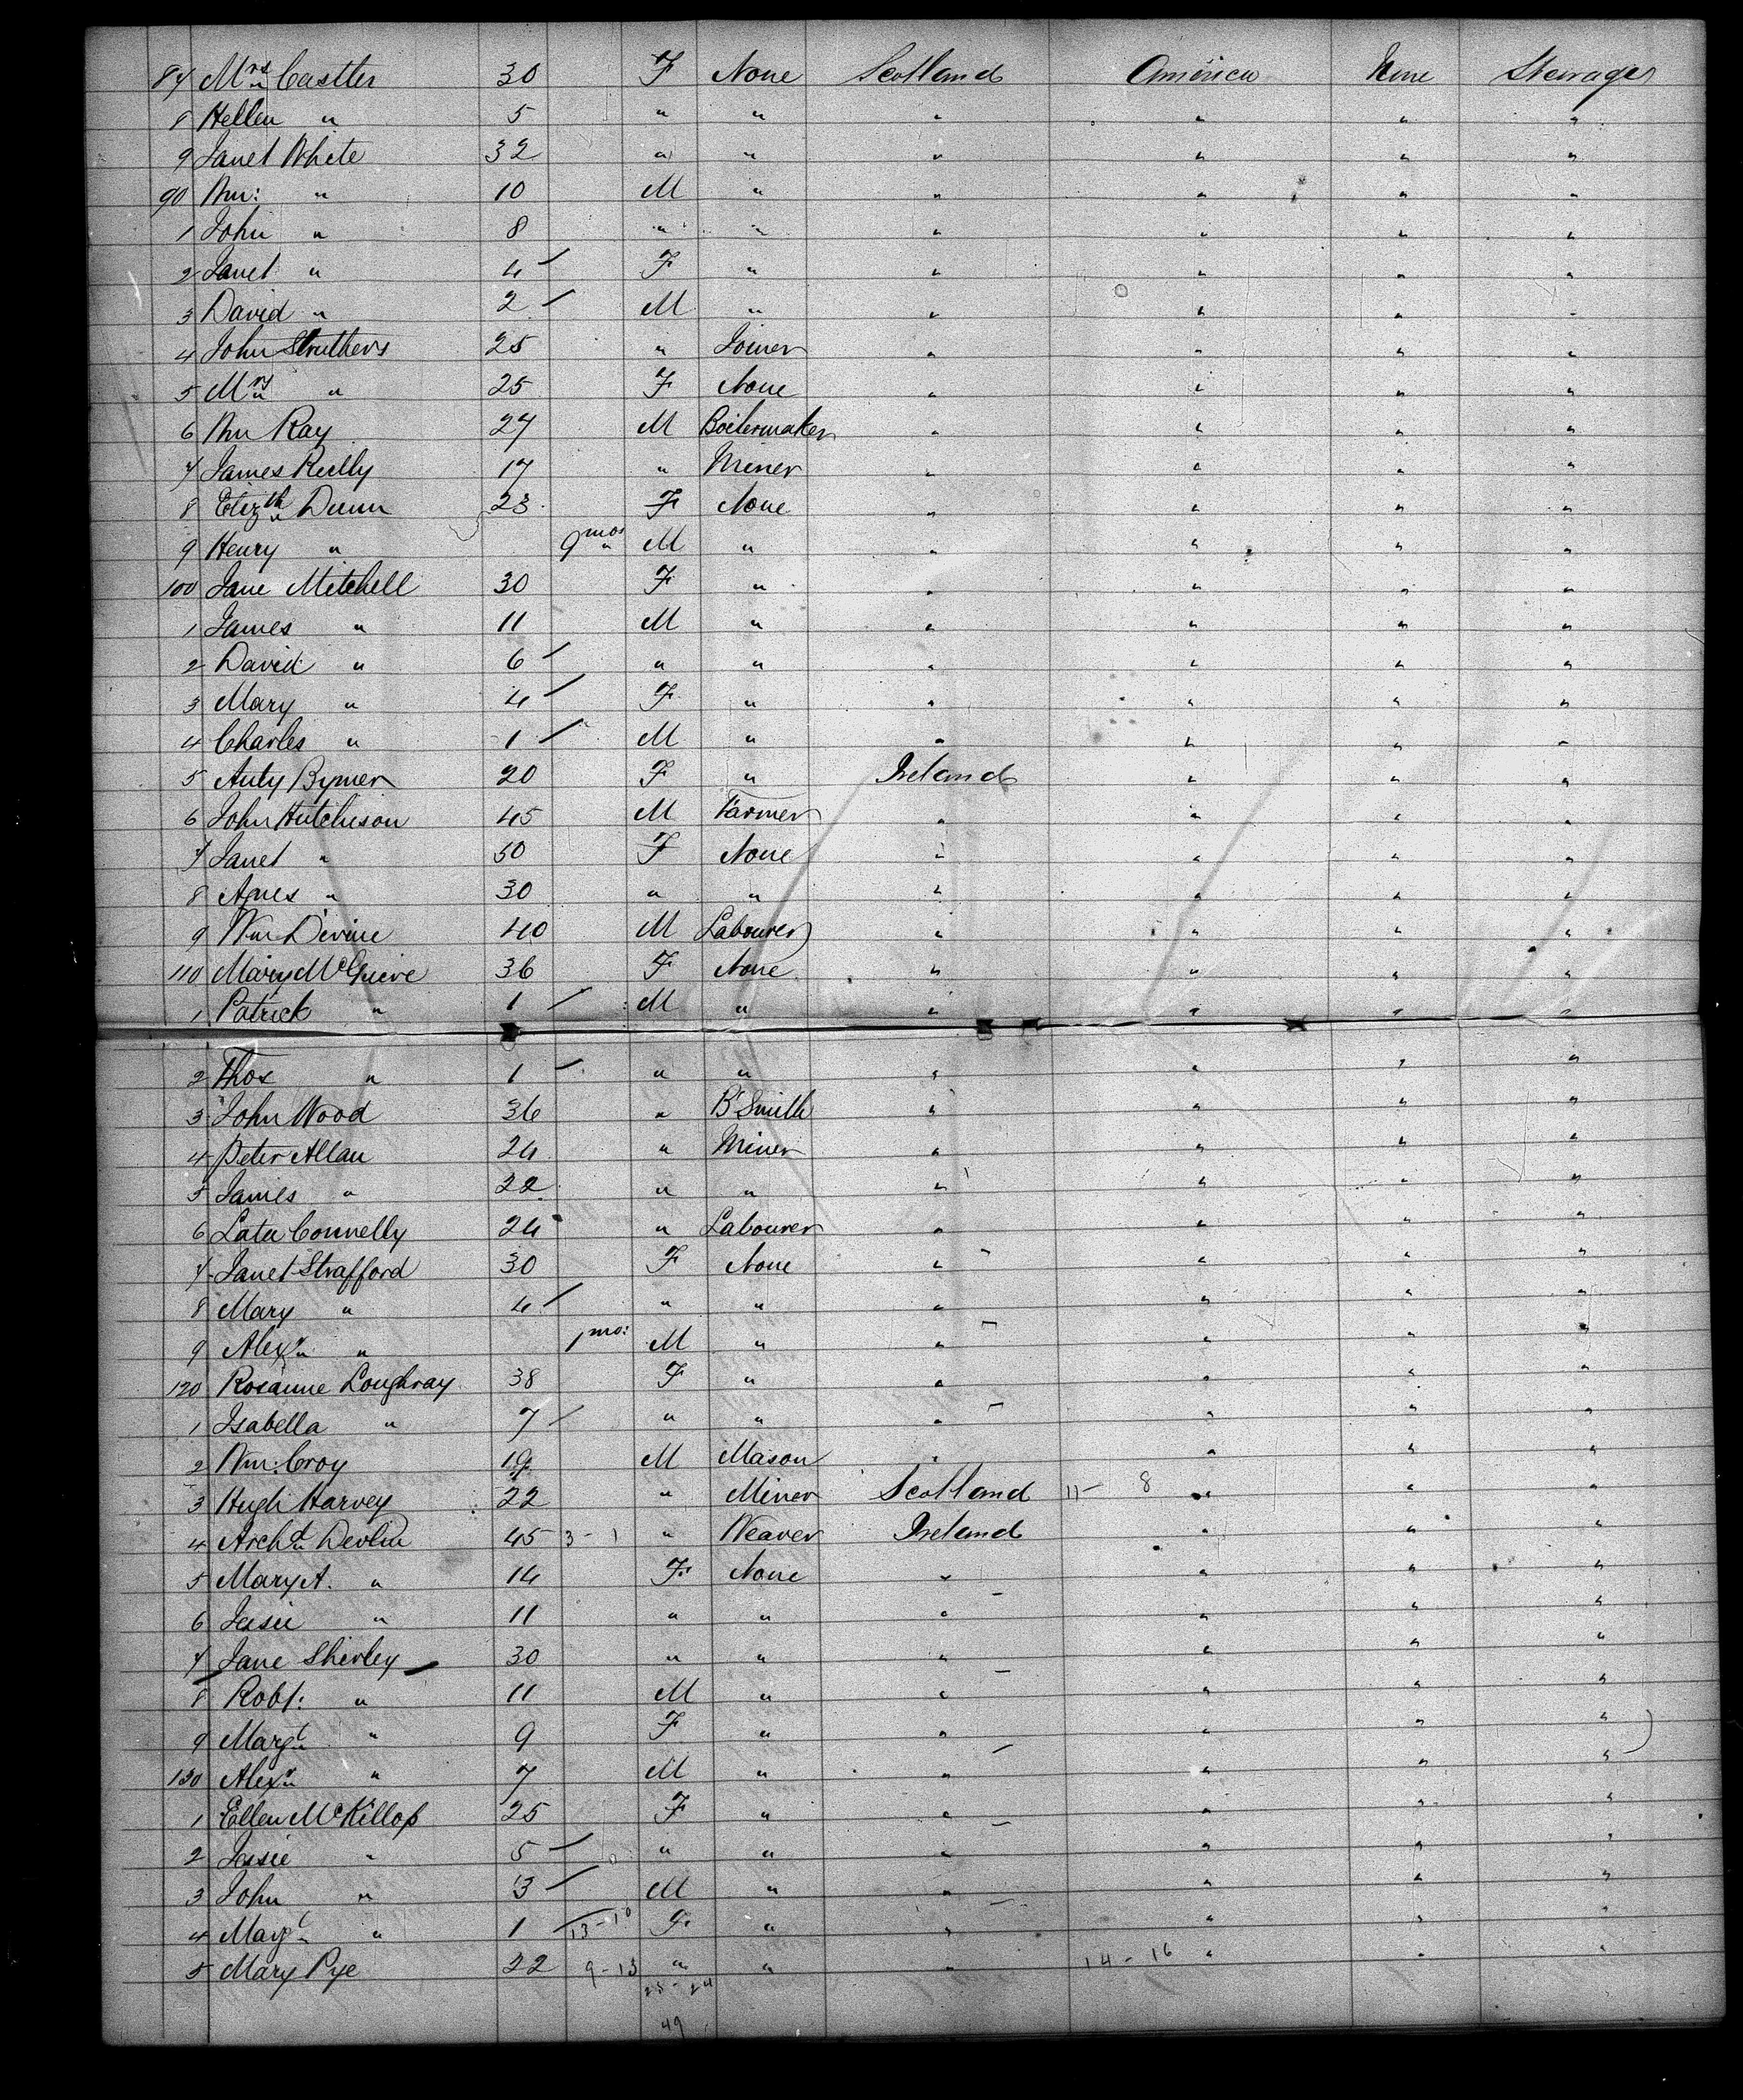 87 Mrs Castler 30 F None Scotland America None Steerage
8 Hellen " 5 " " " " " "
9 Janet White 32 " " " " " "
90 Wm: " 10 M " " " " "
1 John " 8 " " " " " "
2 Janet " 4 F " " " " "
3 David " 2 M " " " " "
4 John Struthers 25 " Joiner " " " "
5 Mrs " 25 F None " " " "
6 Wm Ray 27 M Boilermaker " " " "
7 James Reilly 17 " Miner " " " "
8 Elizth Dunn 23 F None " " " "
9 Henry " 9 mos M " " " " "
100 Jane Mitchell 30 F " " " " "
1 James " 11 M " " " " "
2 David " 6 " " " " " "
3 Mary " 4 F " " " " "
4 Charles " 1 M " " " " "
5 Anty Bymer 20 F " Ireland " " "
6 John Hutchison 45 M Farmer " " " "
7 Janet " 50 F None " " " "
8 Agnes " 30 " " " " " "
9 Wm Devine 40 M Labourer " " " "
110 Mary McGuire 36 F None " " " "
1 Patrick " 1 M " " " " "
2 Thos " 1 " " " " " "
3 John Wood 36 " B'Smith " " " "
4 Peter Allan 24 " Miner " " " "
5 James " 22 " " " " " "
6 Connelly 24 " Labourer " " " "
7 Janet Strafford 30 F None " " " "
8 Mary " 4 " " " " " "
9 Alexr " 1 mo: M " " " " "
120 Rosanne Loughray 38 F " " " " "
1 Isabella " 7 " " " " " "
2 Wm: Croy 19 M Mason " " " "
3 Hugh Harvey 22 " Miner Scotland 11 - 8 " " "
4 Archd Devlin 45 3 - 1 " Weaver Ireland " " "
5 Mary A. " 14 F None " " " "
6 Jessie " 11 " " " " " "
7 Jane Shirley 30 " " " " " "
8 Robt: " 11 M " " " " "
9 Margt " 9 F " " " " "
130 Alexr " 7 M " " " " "
1 Ellen McKillop 25 F " " " " "
2 Jessie " 5 " " " " " "
3 John " 3 M " " " " "
4 Margt " 1 13-10 F " " " " "
5 Mary Pye 22 9-13 " " " 14-16 " " "
25-24
49